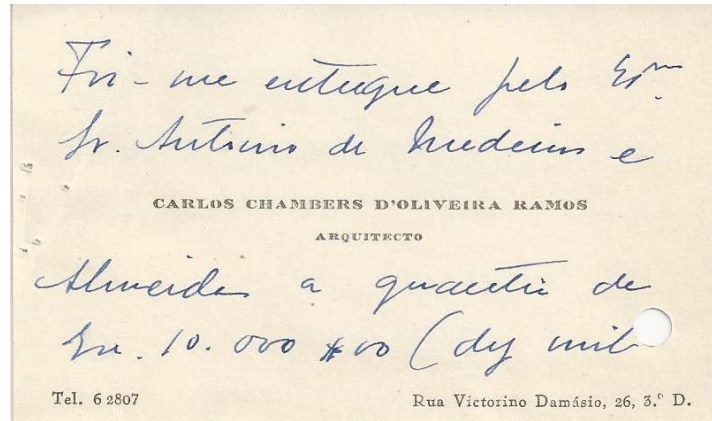 Foi-me entregue pelo Exmo.
Sr. António de Medeiros e
CARLOS CHAMBERS D'OLIVEIRA RAMOS
ARQUITECTO
Almeida a quantia de
Esc. 10.000$00 (dez mil
Tel. 6 2807
Rua Victorino Damásio, 26, 3.º D.